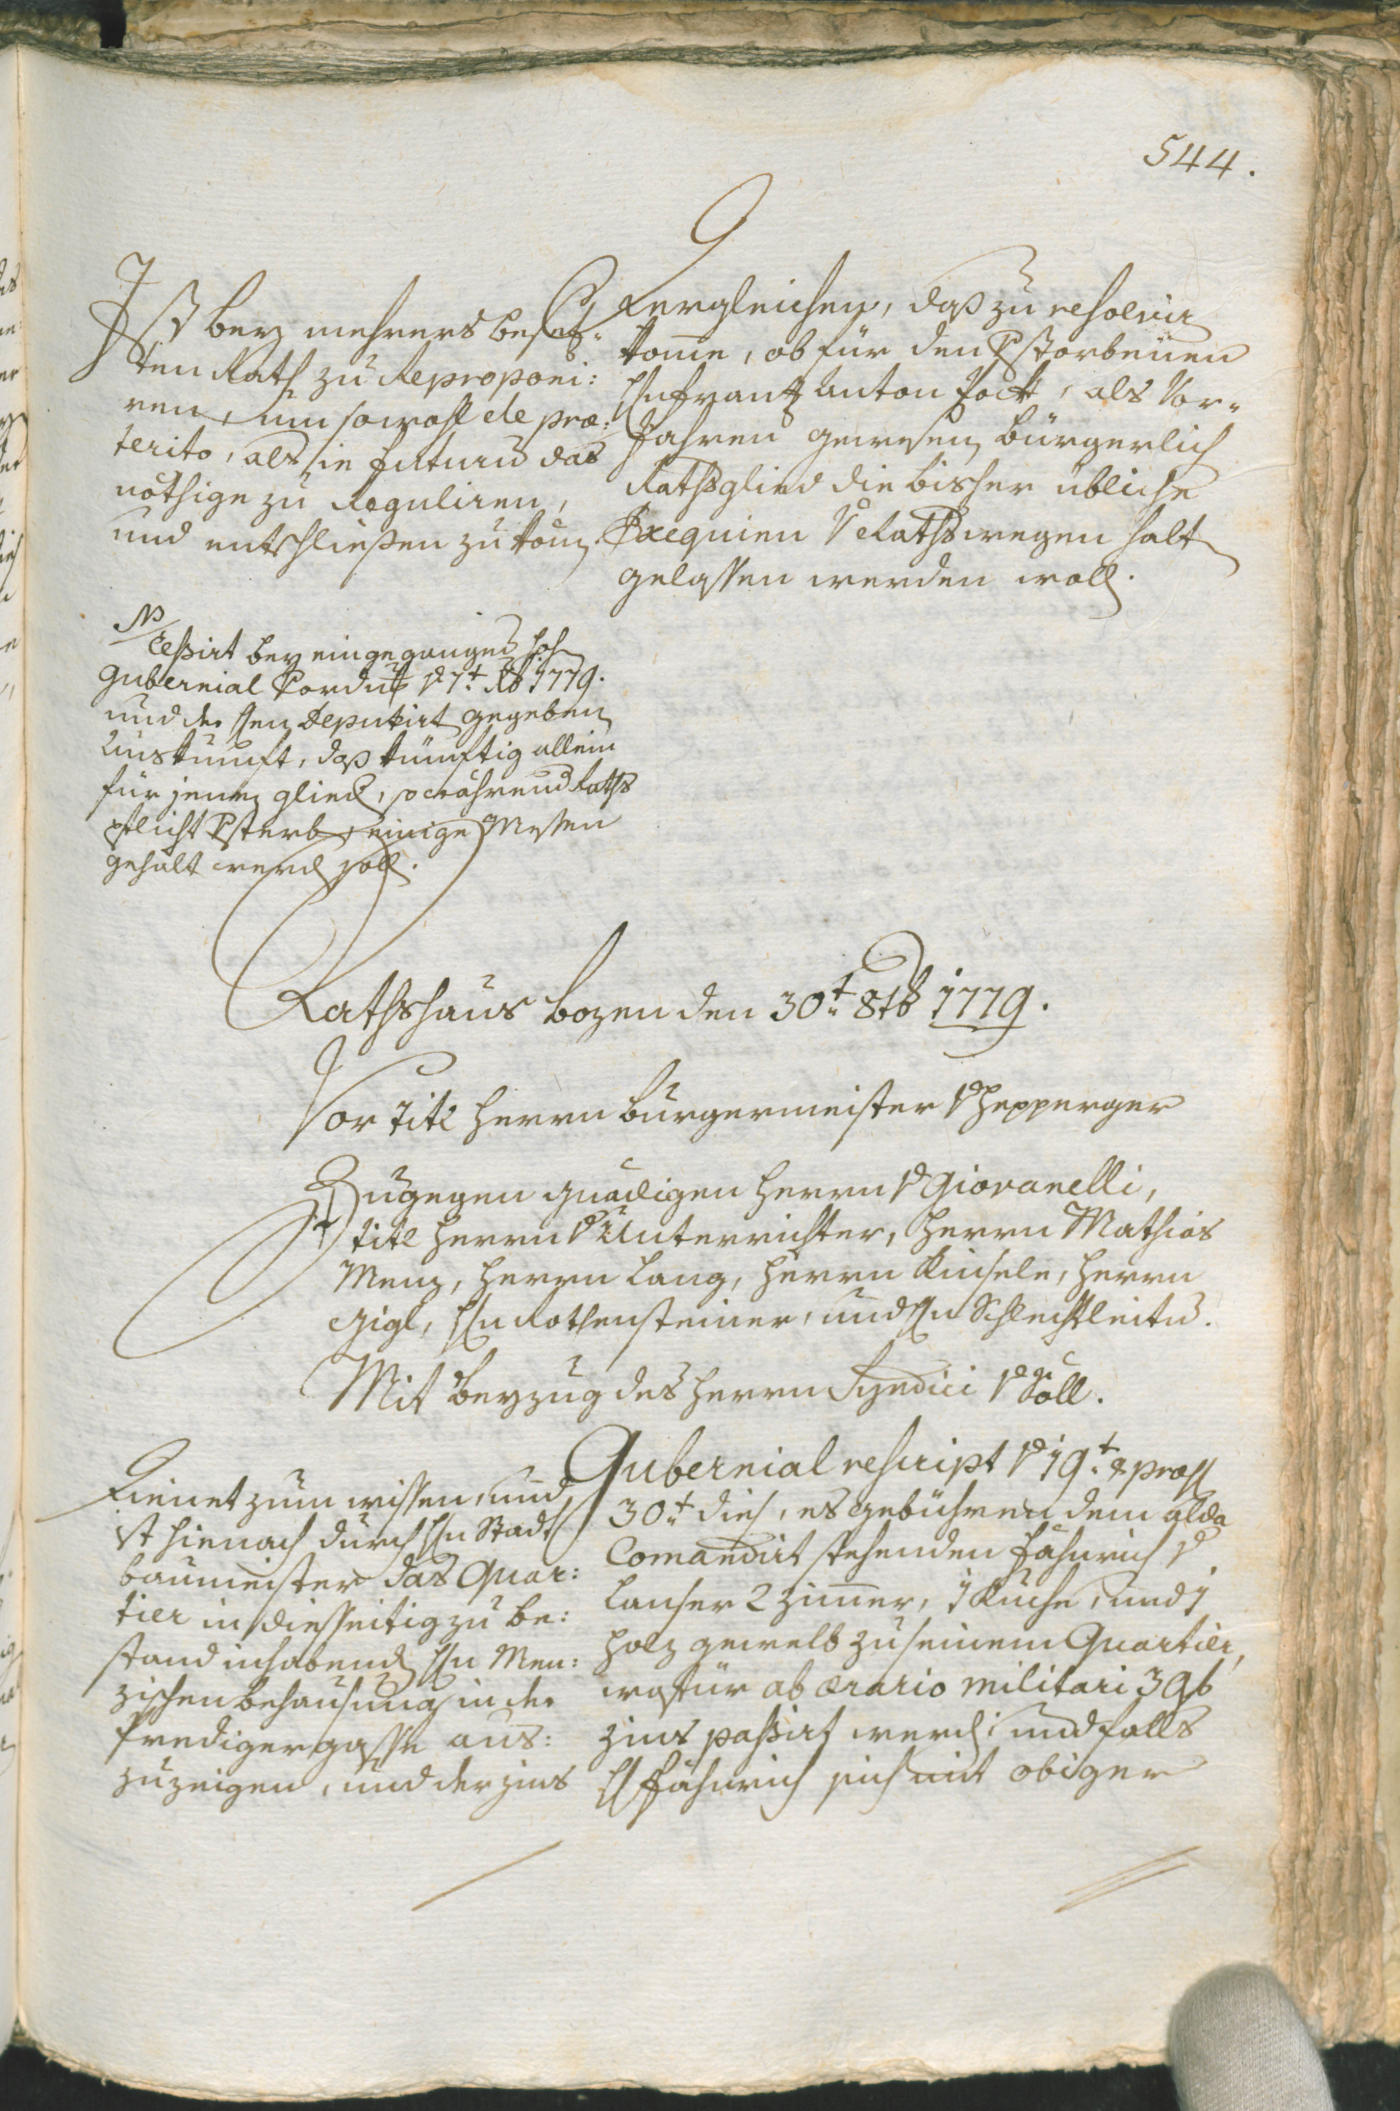 544.
Ist bey mehrers besez¬
ten Rath zu Reproponi:
ren, um sowohl de præ:
terito, als in futuru das
nöthige zu Reguliren,
und entschließen zu könn
Dergleichen, daß zu resolvir
komme, ob für den Vstorbenen
Hn Frantz Anton Fock, als Vor¬
fahren gewesen bürgerlich
Rathsglied die bisher übliche
Exequien V Rathswegen halt
gelassen werden woll.
NB
Cessirt bey eingegangned hoh
Gubernial Vordnung V 7t. Xb 1779.
und dessen Deputirt gegeben
Auskunft, daß künftig allein
für jenen glied, so während Raths
pflicht Vsterb, einige Messen
gehalt werd soll.
Rathshaus Bozen den 30t. 8tb 1779.
Vor Titl Herrn Burgermeister V Hepperger
Zugegen gnädigen Herrn V Giovanelli,
titl Herrn V Unterrichter, Herrn Mathias
Menz, Herrn Lang, Herrn Kinsele, Herrn
Gigl, Hn Rottensteiner, und Hn Schlechtleitn.
Mit Beyzug des Herrn Syndici V Söll.
Dienet zum wissen, und
ist hienach durch Hn Stadt
baumeister das Quar:
tier in diesseitig zu be:
stand inhabend Hn Men:
zischen behausung in der
Predigergasse aus:
zuzeigen, und der zins
Gubernial rescript V 19t. & præs
30t. dies, es gebühren dem alda
Comandirt stehenden Fähnrich V
Lanser 2 Zimmer, 1 Kuche, und 1
Holz gewelb zu seinem Quartier,
wofür ab ærario militari 39 f
zins passirt werd; und falls
H Fähnrich sich mit obiger